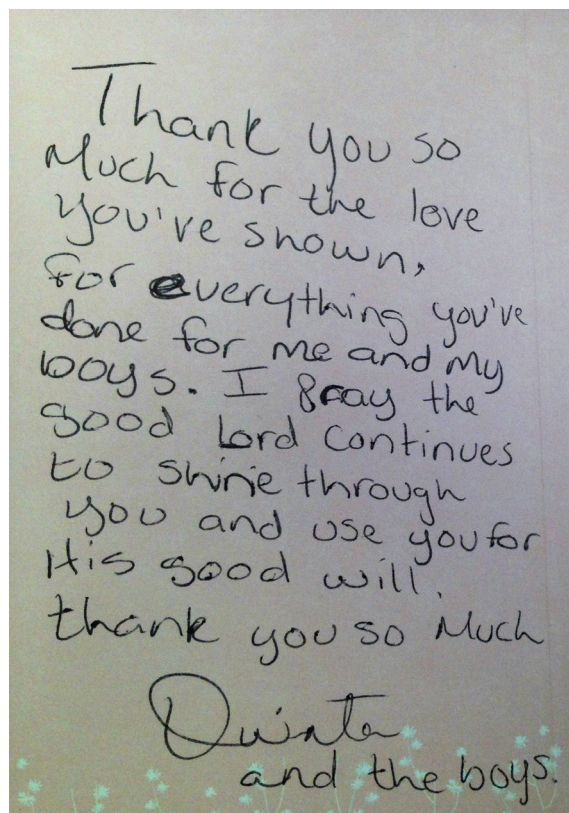 Thank you so
Much for the love
you've shown,
for everything you've
done for me and my
boys. I pray the
good Lord continues
to shine through
you and use you for
His good will.
thank you so Much
Quinta
and the boys.